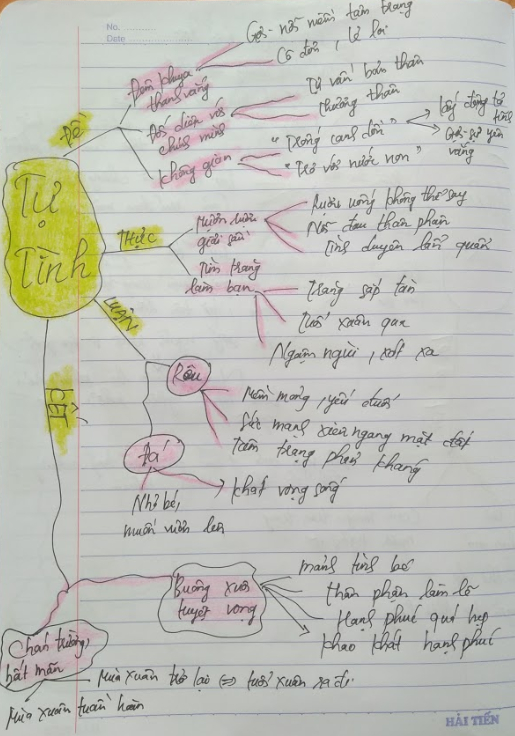 No.
Date
Gợi nỗi niềm tâm trạng
Cô đơn, lẻ loi
Đêm khuya
thanh vắng
Tự vấn bản thân
Thương thân
Đối diện với
chính mình
ĐỀ
Không gian
"Trống canh dồn"
Lấy động tả
tĩnh
Gợi sự yên
vắng
"Trơ với nước non"
Tự
Tình
THỰC
Mượn rượu
giải sầu
Rượu uống không thể say
Nỗi đau thân phận
Tình duyên lẩn quẩn
Tìm trăng
làm bạn
Trăng sắp tàn
Tuổi xuân qua
Ngậm ngùi, xót xa
LUẬN
Rêu
Mềm mỏng, yếu đuối
Sức mạnh xiên ngang mặt đất
Tâm trạng phản kháng
Đá
Khát vọng sống
Nhỏ bé,
muốn vươn lên
KẾT
Buông xuôi
tuyệt vọng
mảnh tình bé
thân phận làm lẽ
Hạnh phúc quá hẹp
khao khát hạnh phúc
Chán trường,
bất mãn
Mùa xuân trở lại <=> tuổi xuân ra đi
Mùa xuân tuần hoàn
HẢI TIẾN